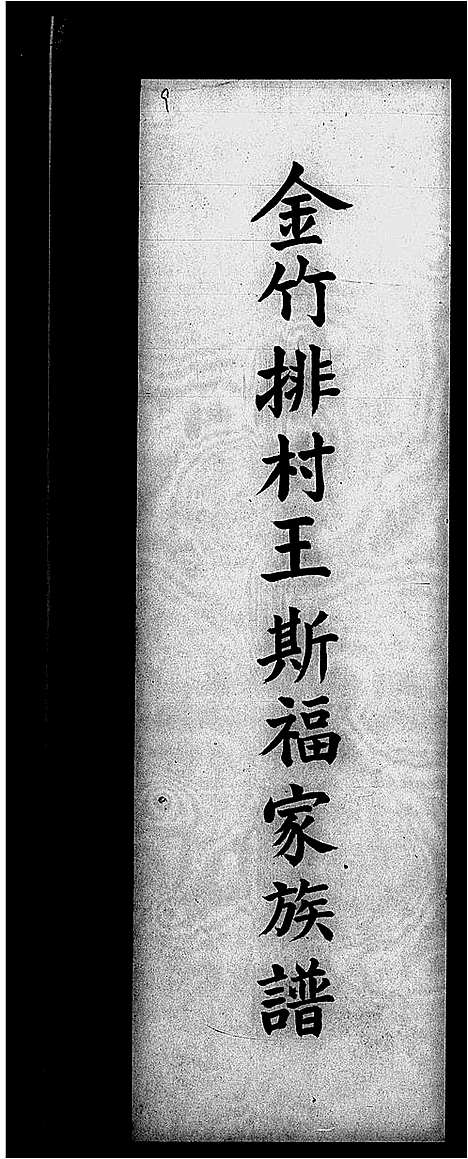 金竹排村王斯福家族譜